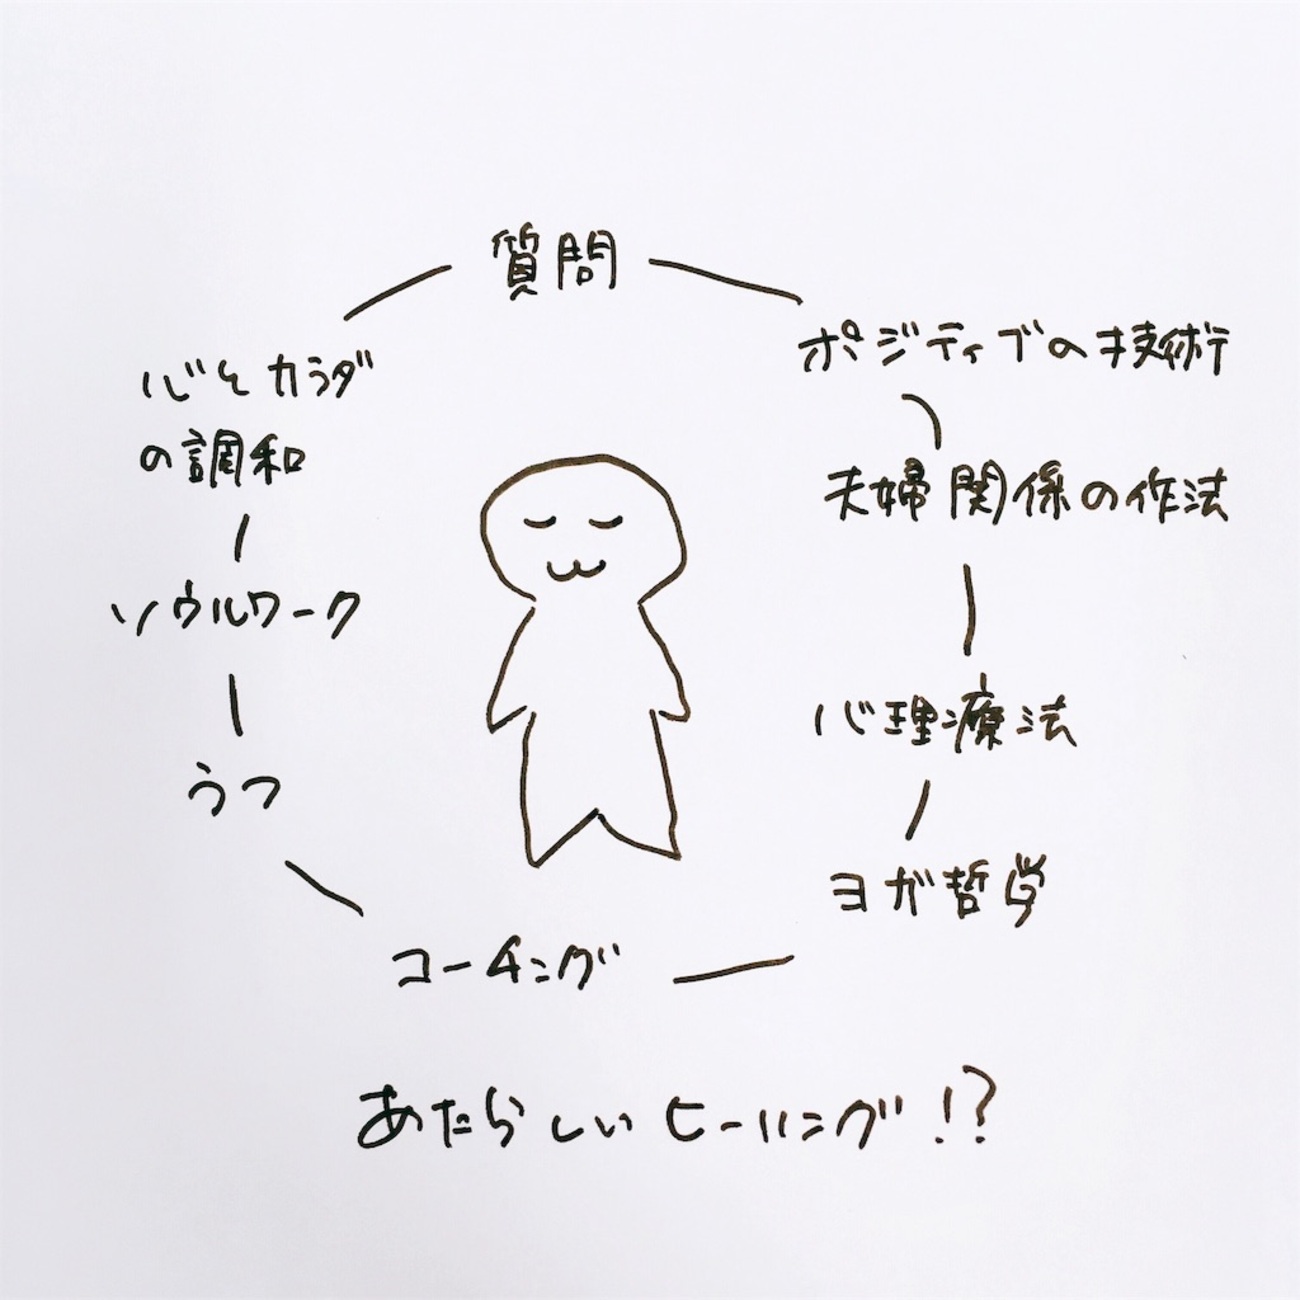 質問
ポジティブの技術
夫婦関係の作法
心理療法
ヨガ哲学
コーチング
うつ
ソウルワーク
心とカラダ
の調和
あたらしいヒーリング!?